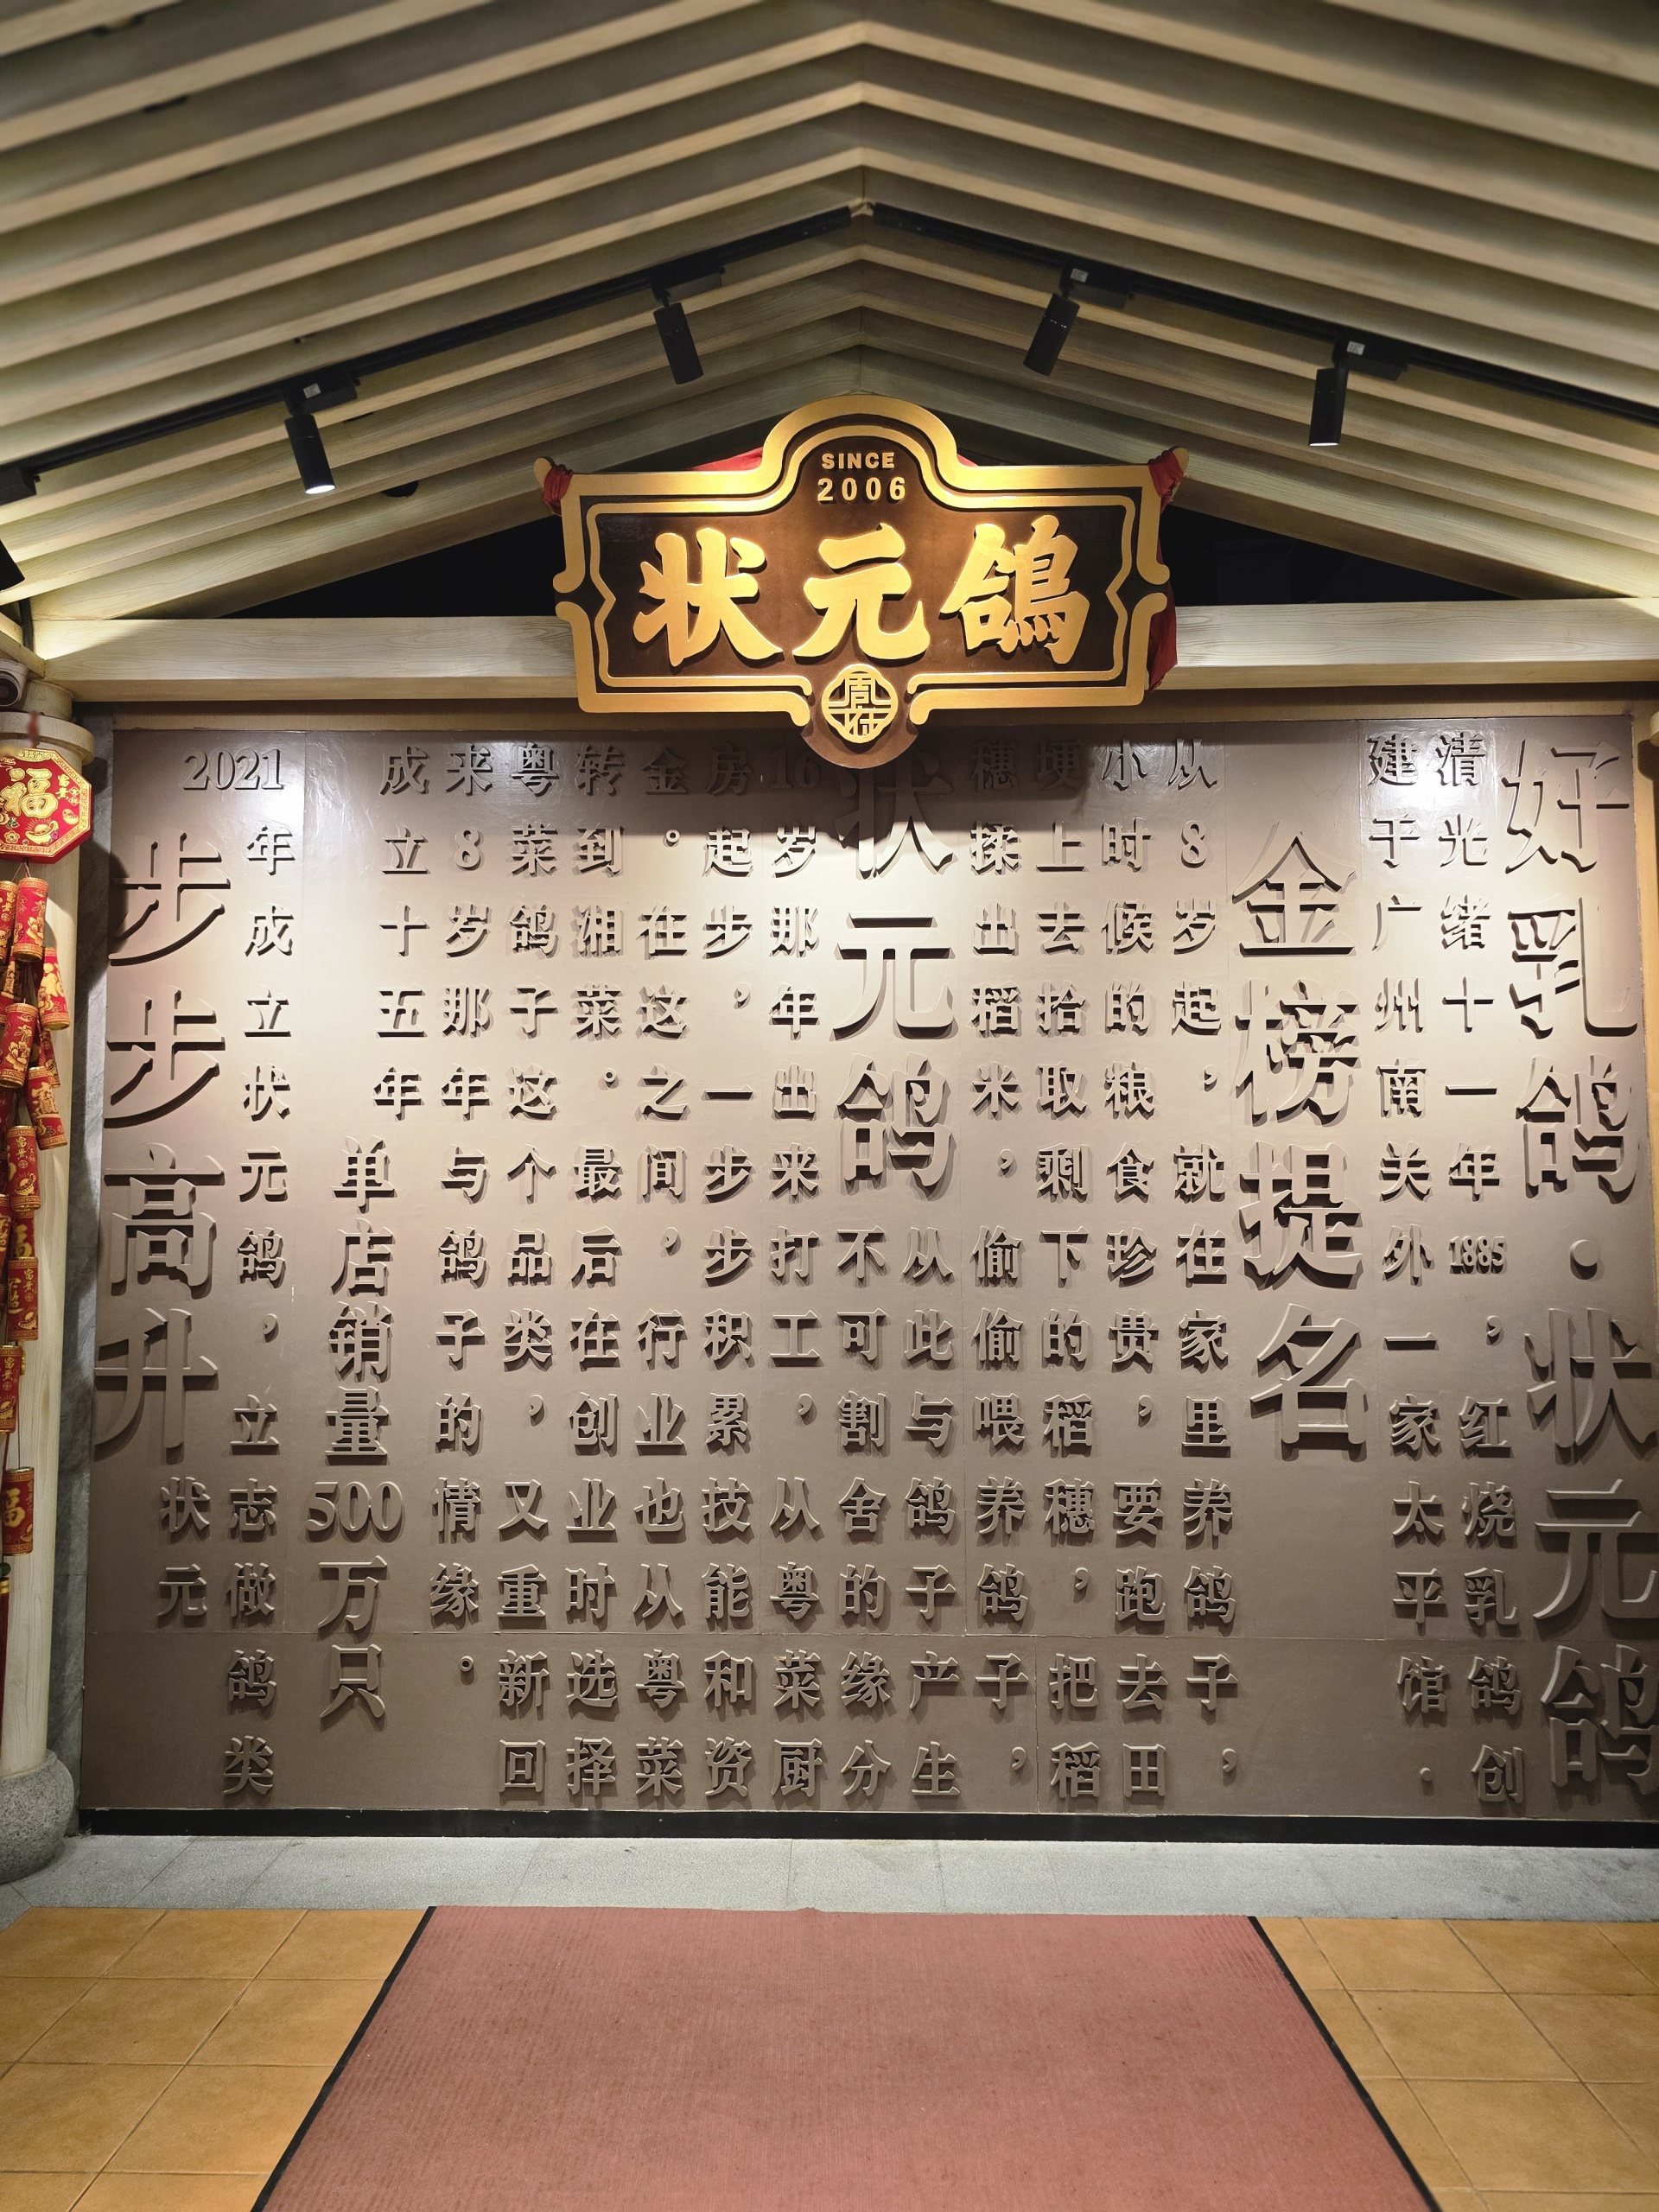 SINCE
2006
状元鸽
周师
好乳鸽·状元鸽
清光绪十一年1885，红烧乳鸽创
建于广州南关外一家太平馆.
金榜提名
从8岁起，就在家里养鸽子，
小时候的粮食珍贵，要跑去田
埂上去拾取剩下的稻穗，把稻
穗揉出稻米，偷偷喂养鸽子，
状元鸽
从此与鸽子产生
不可割舍的缘分
16岁那年出来打工，从粤菜厨
房起步，一步步积累技能和资
金。在这之间，行业也从粤菜
转到湘菜。最后在创业时选择
粤菜鸽子这个品类，又重新回
来8岁那年与鸽子的情缘。
成立十五年
单店销量500万只
2021年成立状元鸽，立志做鸽类
状元
步步高升
福
福